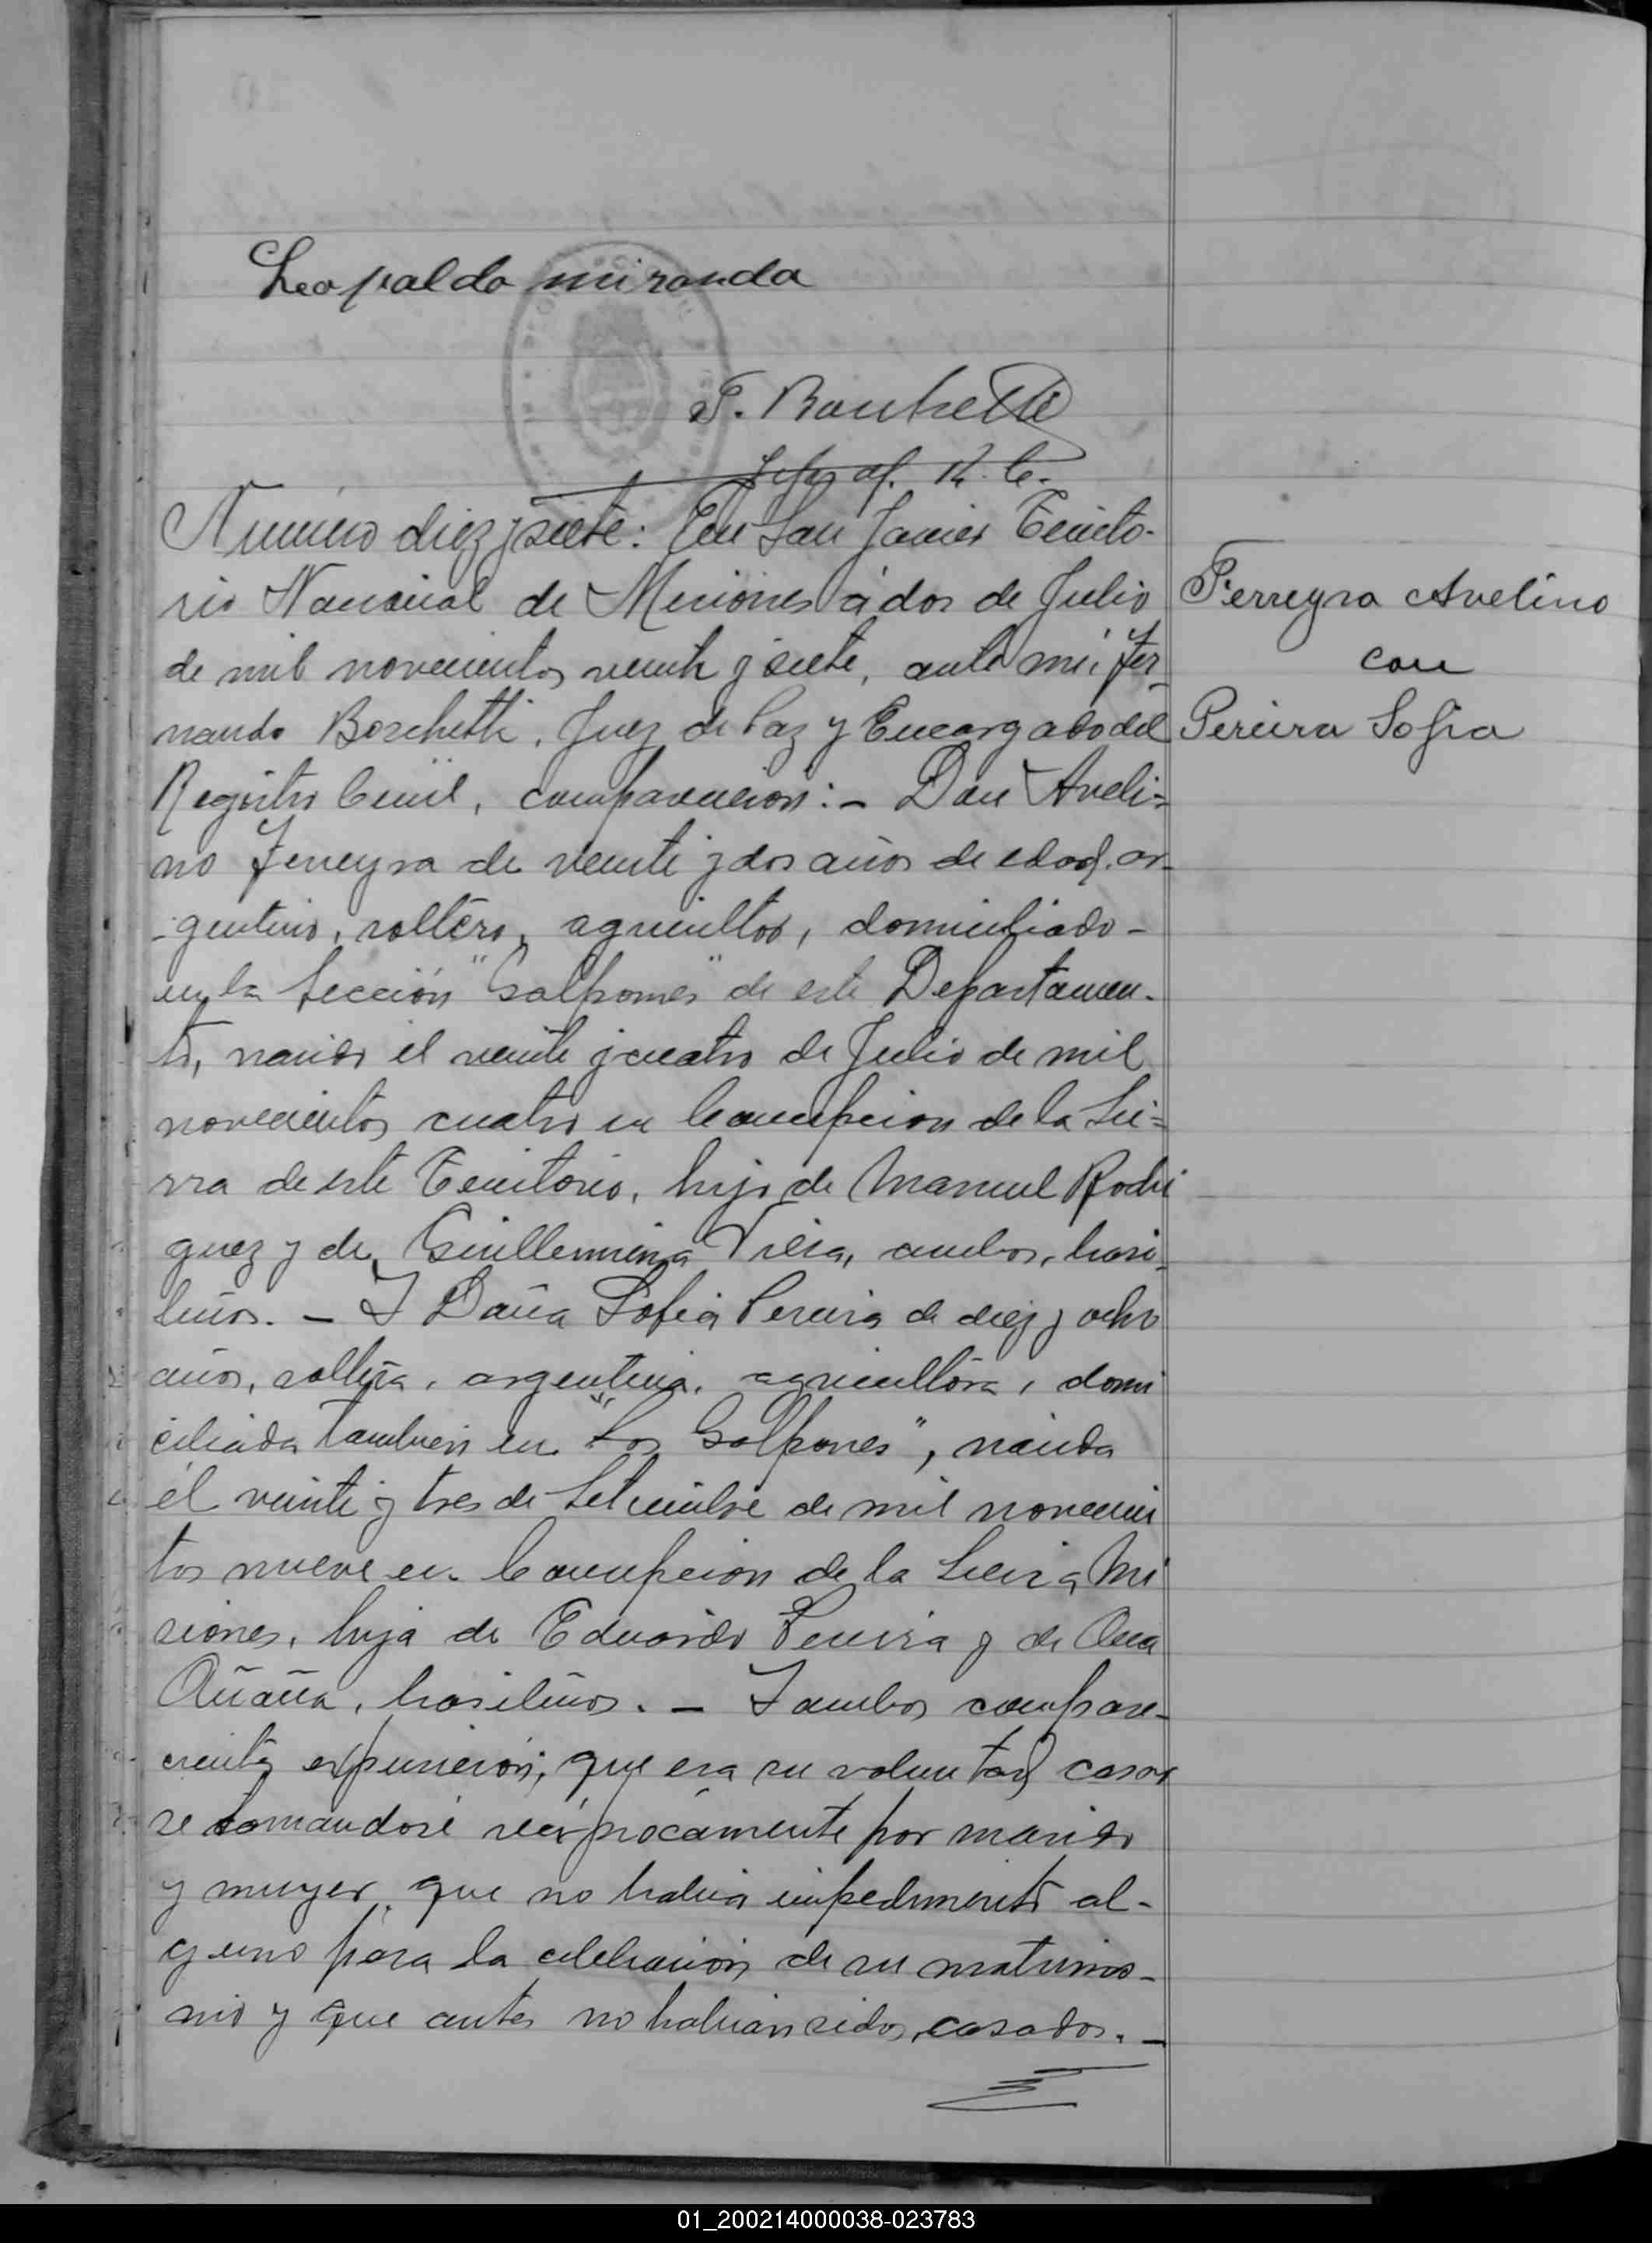 Leopaldo miranda
F. Borchetti
Jefe of. R. C.
Número diez y siete: En San Javier Territo-
rio Nacional de Misiones á dos de Julio
de mil novecientos veinte y siete, ante mí, Fer-
nando Borchetti, Juez de Paz y Encargado del
Registro Civil, comparecieron:- Don Aveli=
no Ferreyra de veinte y dos años de edad, ar-
-gentino, soltero, agricultor, domiciliado-
en la Sección "Galpones" de este Departamen-
to, nacido el veinte y cuatro de Julio de mil
novecientos cuatro en Concepcion de la Sie=
rra de este Territorio, hijo de Manuel Rodri
guez y de Guillermina Viera, ambos, brasi-
leños. - Y Doña Sofia Pereira de diez y ocho
años, soltera, argentina, agricultora, domi
ciliada tambien en "Los Galpones", nacida
el veinte y tres de Setiembre de mil novecien
tos nueve en Concepcion de la Sierra Mi
siones, hija de Eduardo Pereira y de Ana
Añaña, brasileños. - Y ambos compare-
cientes expusieron; que era su voluntad casar
se tomandose reciprocamente por marido
y muger, que no habia impedimento al-
guno para la celebracion de su matrimo-
nio y que antes no habian sidos casados. -
Ferreyra Avelino
con
Pereira Sofia
01_200214000038-023783